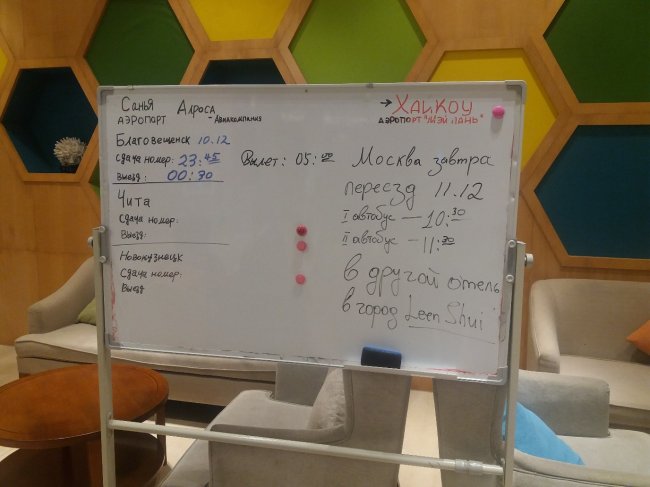 Санья Алроса
аэропорт - Авиакомпания
Благовещенск 10.12
Сдача номер: 23:45 Вылет: 05:40
Выезд: 00:30
Чита
Сдача номер:
Выезд:
Новокузнецк
Сдача номер:
Выезд
→ Хайкоу
аэропорт "Мэй Лань"
Москва завтра
переезд 11.12
I автобус — 10:30
II автобус — 11:30
в другой отель
в город Leen Shui